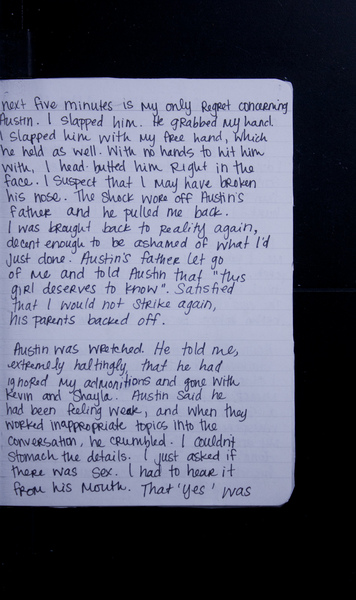 next five minutes is my only regret concerning
Austin. I slapped him. He grabbed my hand.
I slapped him with my free hand, which
he held as well. With no hands to hit him
with, I head-butted him right in the
face. I suspect that I may have broken
his nose. The shock wore off Austin's
father and he pulled me back.
I was brought back to reality again,
decent enough to be ashamed of what I'd
just done. Austin's father let go
of me and told Austin that "this
girl deserves to know". Satisfied
that I would not strike again,
his parents backed off.
Austin was wretched. He told me,
extremely haltingly, that he had
ignored my admonitions and gone with
Kevin and Shayla. Austin said he
had been feeling weak, and when they
worked inappropriate topics into the
conversation, he crumbled. I couldn't
stomach the details. I just asked if
there was sex. I had to hear it
from his mouth. That 'yes' was